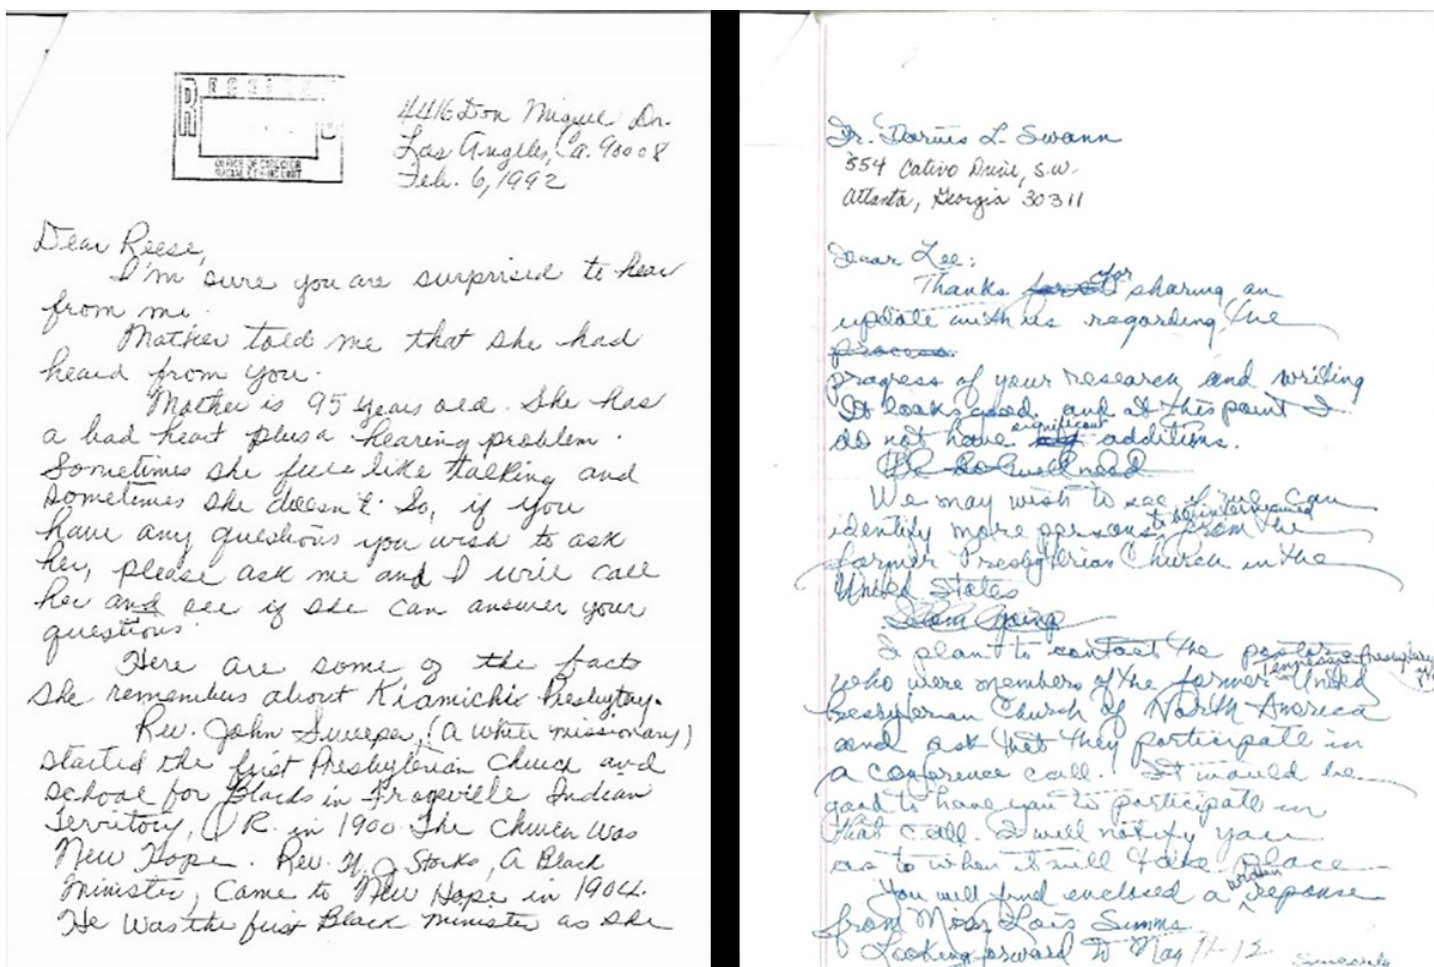 R E C E I
OFFICE OF DIRECTOR
4416 Don Miguel Dr.
Los Angeles, Ca. 90008
Feb. 6, 1992
Dear Reese,
I'm sure you are surprised to hear
from me.
Mother told me that she had
heard from you.
Mother is 95 years old. She has
a bad heart plus a hearing problem.
Sometimes she feels like talking and
sometimes she doesn't. So, if you
have any questions you wish to ask
her, please ask me and I will call
her and see if she can answer your
questions.
Here are some of the facts
she remembers about Kiamichi Presbytery.
Rev. John Sweeper, (a white missionary)
started the first Presbyterian Church and
school for Blacks in Frogville Indian
Territory, in 1900. The church was
New Hope. Rev. Storks, A Black
Minister, came to New Hope in 1904.
He was the first Black minister as she
Dr. Darius L. Swann
554 Cativo Drive, S.W.
Atlanta, Georgia 30311
Dear Lee:
Thanks for sharing an
update with us regarding the
process
progress of your research and writing
It looks good and at this point I
do not have significant additions.
We may wish to see if we can
identify more persons to be interviewed from the
former Presbyterian Church in the
United States
I plan to contact the pastors
who were members of the former Tennessee Presbytery United
Presbyterian Church of North America
and ask that they participate in
a conference call. It would be
good to have you to participate in
that call. I will notify you
as to when it will take place
You will find enclosed a written reponse
from Miss Lois Simms
Looking forward to May 11-12
Sincerely